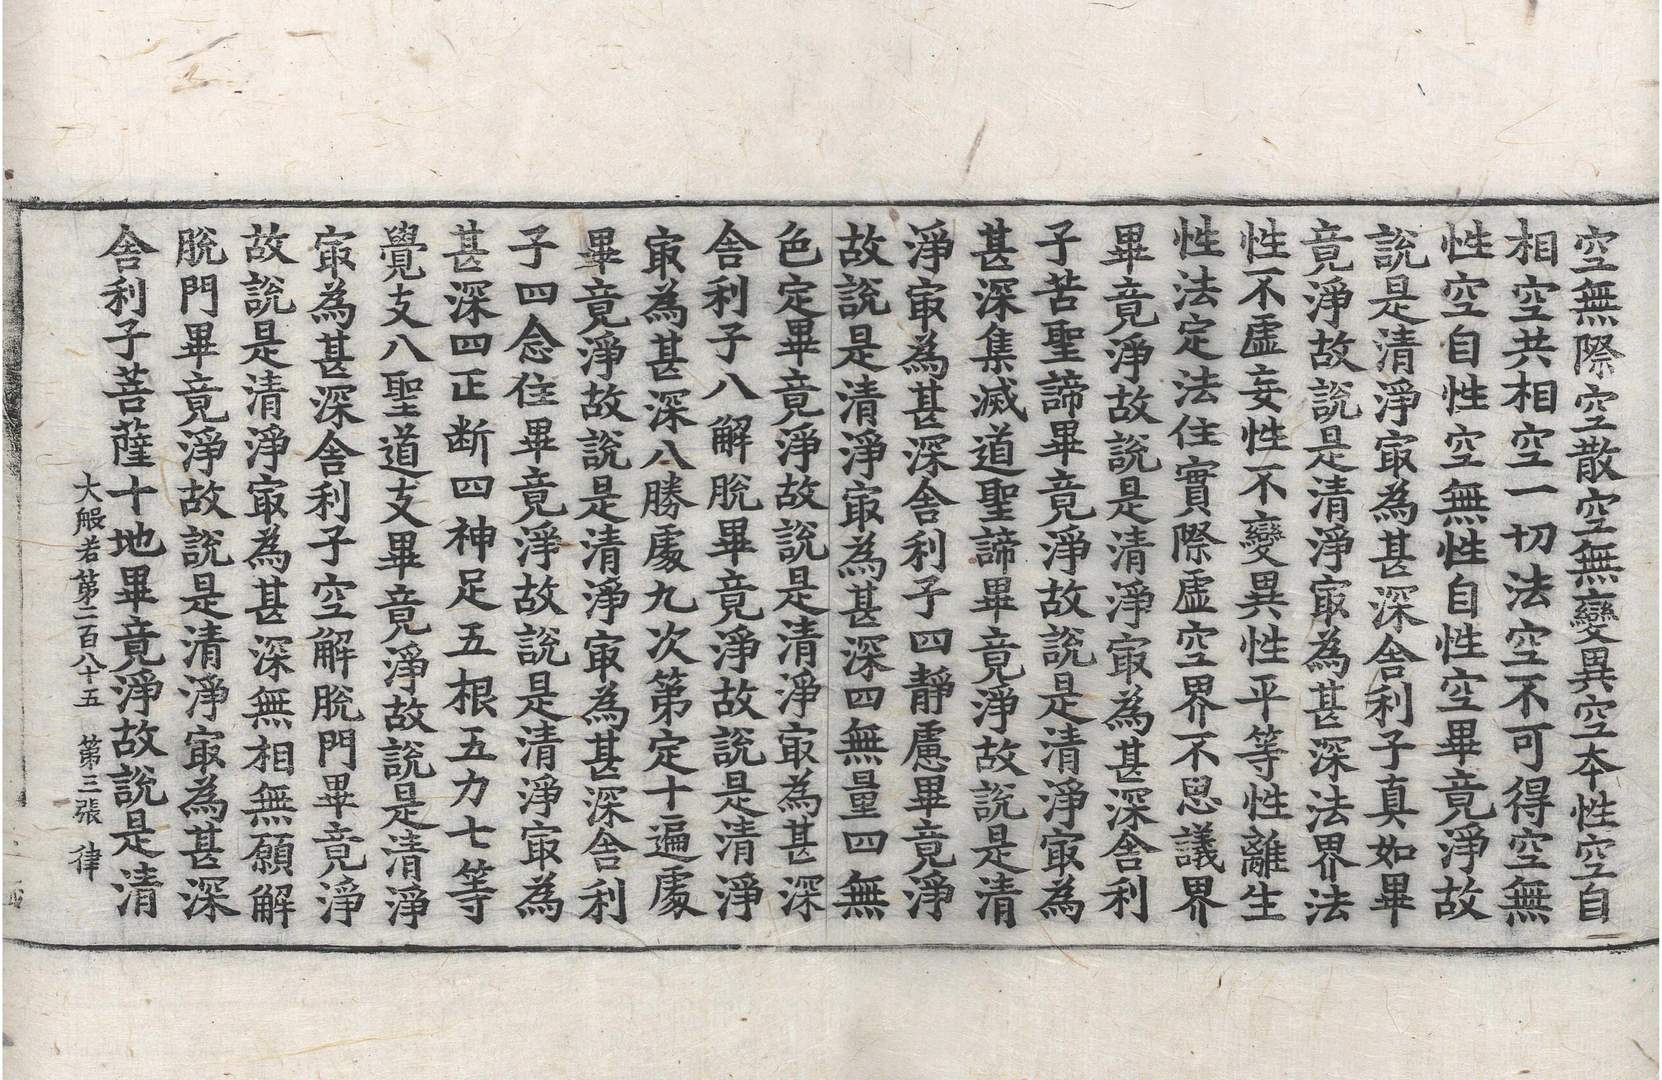 空無際空散空無變異空本性空自
相空共相空一切法空不可得空無
性空自性空無性自性空畢竟淨故
說是清淨冣為甚深舍利子真如畢
竟淨故說是清淨冣為甚深法界法
性不虛妄性不變異性平等性離生
性法定法住實際虛空界不思議界
畢竟淨故說是清淨冣為甚深舍利
子苦聖諦畢竟淨故說是清淨冣為
甚深集滅道聖諦畢竟淨故說是清
淨冣為甚深舍利子四靜慮畢竟淨
故說是清淨冣為甚深四無量四無
色定畢竟淨故說是清淨冣為甚深
舍利子八解脫畢竟淨故說是清淨
冣為甚深八勝處九次第定十遍處
畢竟淨故說是清淨冣為甚深舍利
子四念住畢竟淨故說是清淨冣為
甚深四正断四神足五根五力七等
覺支八聖道支畢竟淨故說是清淨
冣為甚深舍利子空解脫門畢竟淨
故說是清淨冣為甚深無相無願解
脫門畢竟淨故說是清淨冣為甚深
舍利子菩薩十地畢竟淨故說是清
大般若第二百八十五 第三張 律